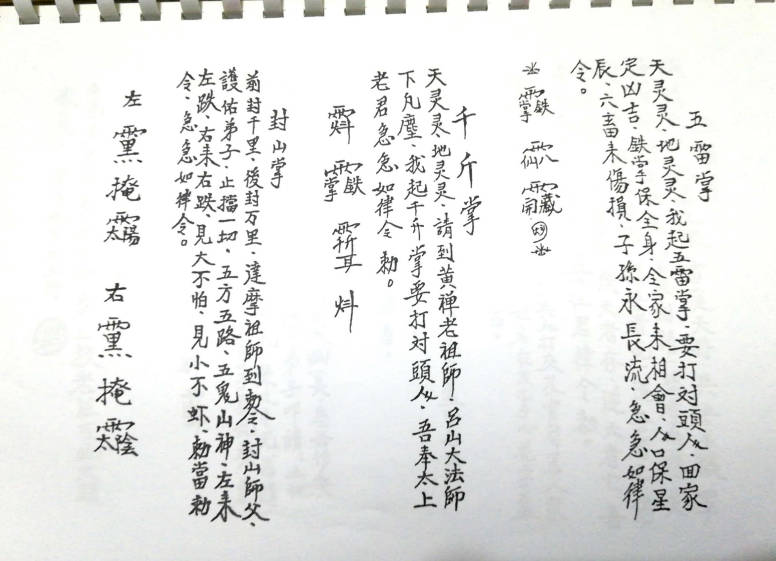 五雷掌
天灵灵、地灵灵、我起五雷掌、要打对頭人、回家
定凶吉、鉄掌保全身、全家来相會、人口保星
辰、六畜未傷損、子孫永長流、急急如律
令。
千斤掌
天灵灵、地灵灵、請到黄禅老祖師、吕山大法師
下凡塵、我起千斤掌要打对頭人、吾奉太上
老君急急如律令勅。
封山掌
前封千里、後封万里、達摩祖師到勅令、封山師父、
護佑弟子、止擋一切、五方五路、五鬼山神、左来
左跌、右来右跌、見大不怕、見小不虾、勅當勅
令、急急如律令。
左 掩 右 掩